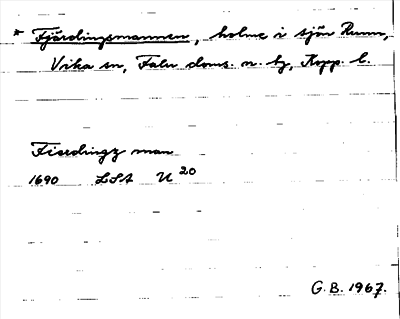 * Fjärdingsmannen, holme i sjön Runn,
Vika sn, Falu doms. n. tg, Kopp. l.
Fierdingz man
1690 LSA U 20
G.B. 1967.